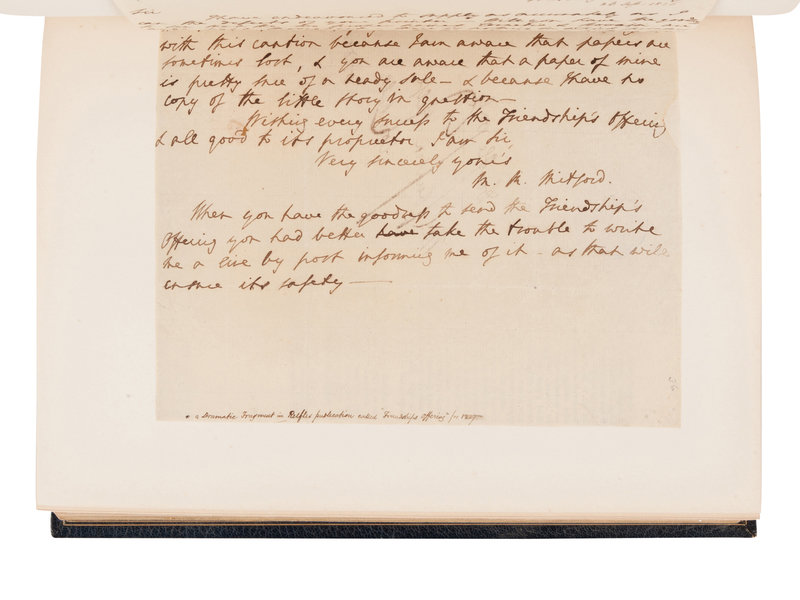 Sir
I have endeavoured to
with this caution because I am aware that papers are
sometimes lost, & you are aware that a paper of mine
is pretty sure of a ready sale — & because I have no
copy of the little story in question —
Wishing every success to the Friendship's Offering
& all good to its proprietor, I am Sir,
Very sincerely yours
M. R. Mitford.
When you have the goodness to send the Friendship's
Offering you had better have take the trouble to write
me a line by post informing me of it — as that will
ensure its safety —
* a Dramatic Fragment in Relfe's publication called "Friendship's Offering" for 1827